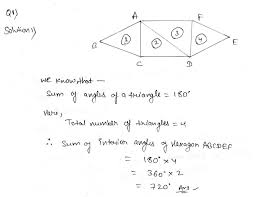 Q8)
Solution)
A
F
B
①
②
③
④
E
C
D
We know that —
Sum of angles of a triangle = 180°
Here,
Total number of triangles = 4
∴ Sum of Interior angles of Hexagon ABCDEF
= 180° × 4
= 360° × 2
= 720° Ans